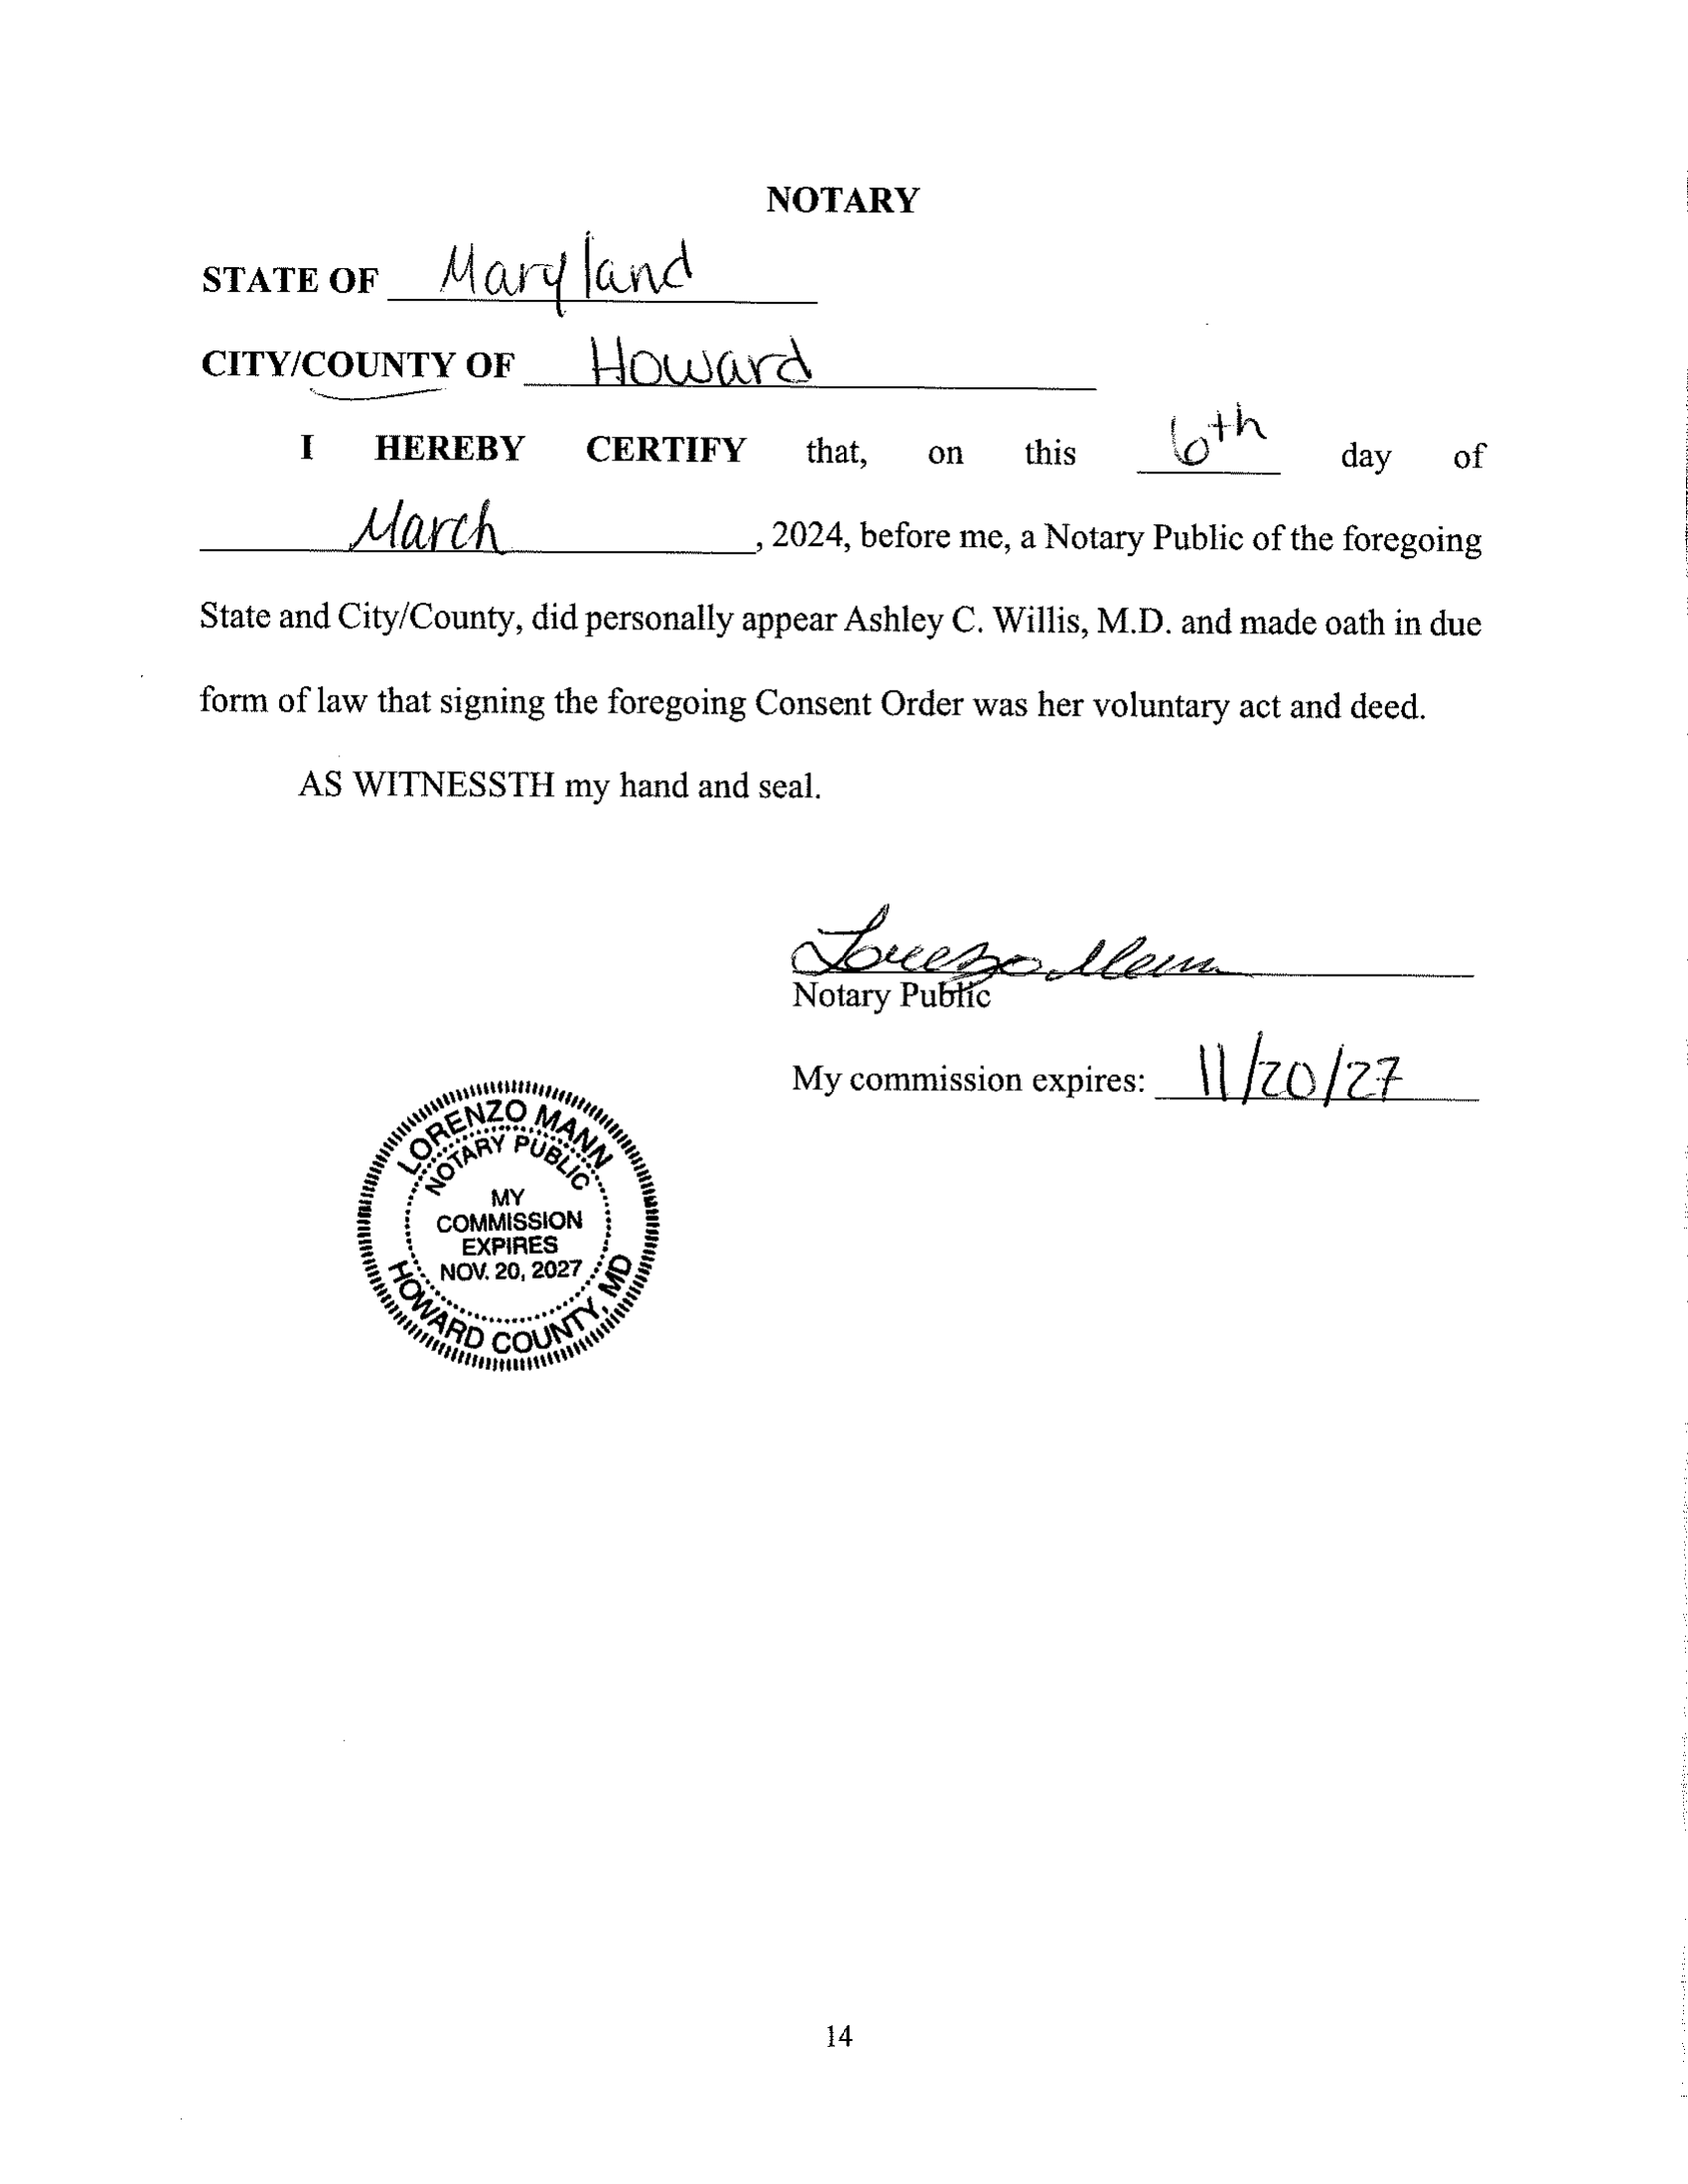 NOTARY
STATE OF Maryland
CITY/COUNTY OF Howard
I HEREBY CERTIFY that, on this 6th day of
March, 2024, before me, a Notary Public of the foregoing
State and City/County, did personally appear Ashley C. Willis, M.D. and made oath in due
form of law that signing the foregoing Consent Order was her voluntary act and deed.
AS WITNESSTH my hand and seal.
Lorenzo Mann
Notary Public
My commission expires: 11/20/27
LORENZO MANN
NOTARY PUBLIC
MY
COMMISSION
EXPIRES
NOV. 20, 2027
HOWARD COUNTY, MD
14